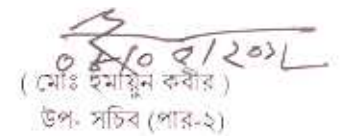 ( মোঃ হুমায়ুন কবীর )
উপ- সচিব (পার-২)